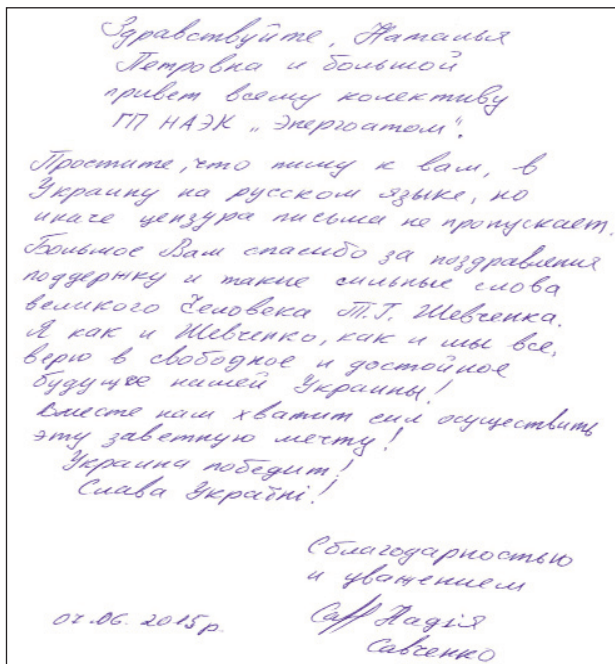 Здравствуйте, Наталья
Петровна и большой
привет всему колективу
ГП НАЭК „Энергоатом".
Простите, что пишу к вам, в
Украину на русском языке, но
иначе цензура письма не пропускает.
Большое Вам спасибо за поздравления
поддержку и такие сильные слова
великого Человека Т.Г. Шевченка.
Я как и Шевченко, как и мы все,
верю в свободное и достойное
будущее нашей Украины!
Вместе нам хватит сил осуществить
эту заветную мечту!
Украина победит!
Слава Україні!
С благодарностью
и уважением
Надія
Савченко
06. 2015р.